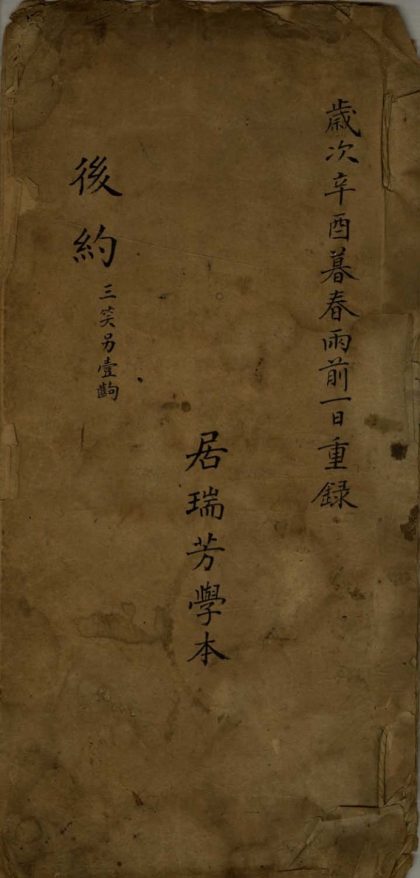 歲次辛酉暮春雨前一日重録
居瑞芳學本
後約
三笑另壹齣